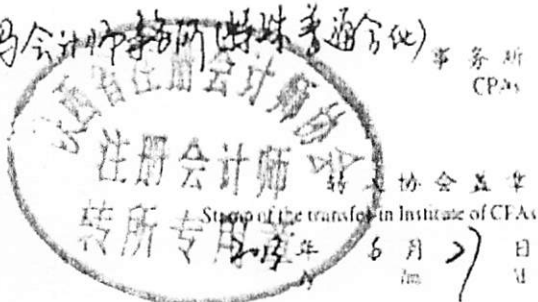 会计师事务所(特殊普通合伙)
事务所
CPAs
省注册会计师协会
注册会计师
转所专用章
协会盖章
Stamp of the transfer-in Institute of CPAs
年 6 月 27 日
/y /m /d